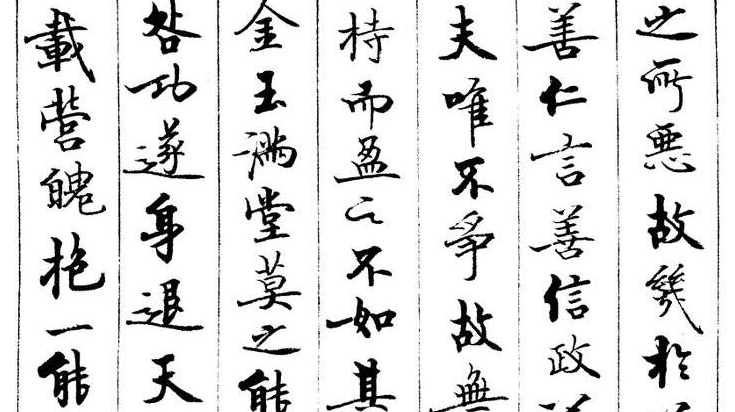 之所惡故幾於
善仁言善信政
夫唯不爭故無
持而盈之不如其
金玉滿堂莫之能
咎功遂身退天
載營魄抱一能